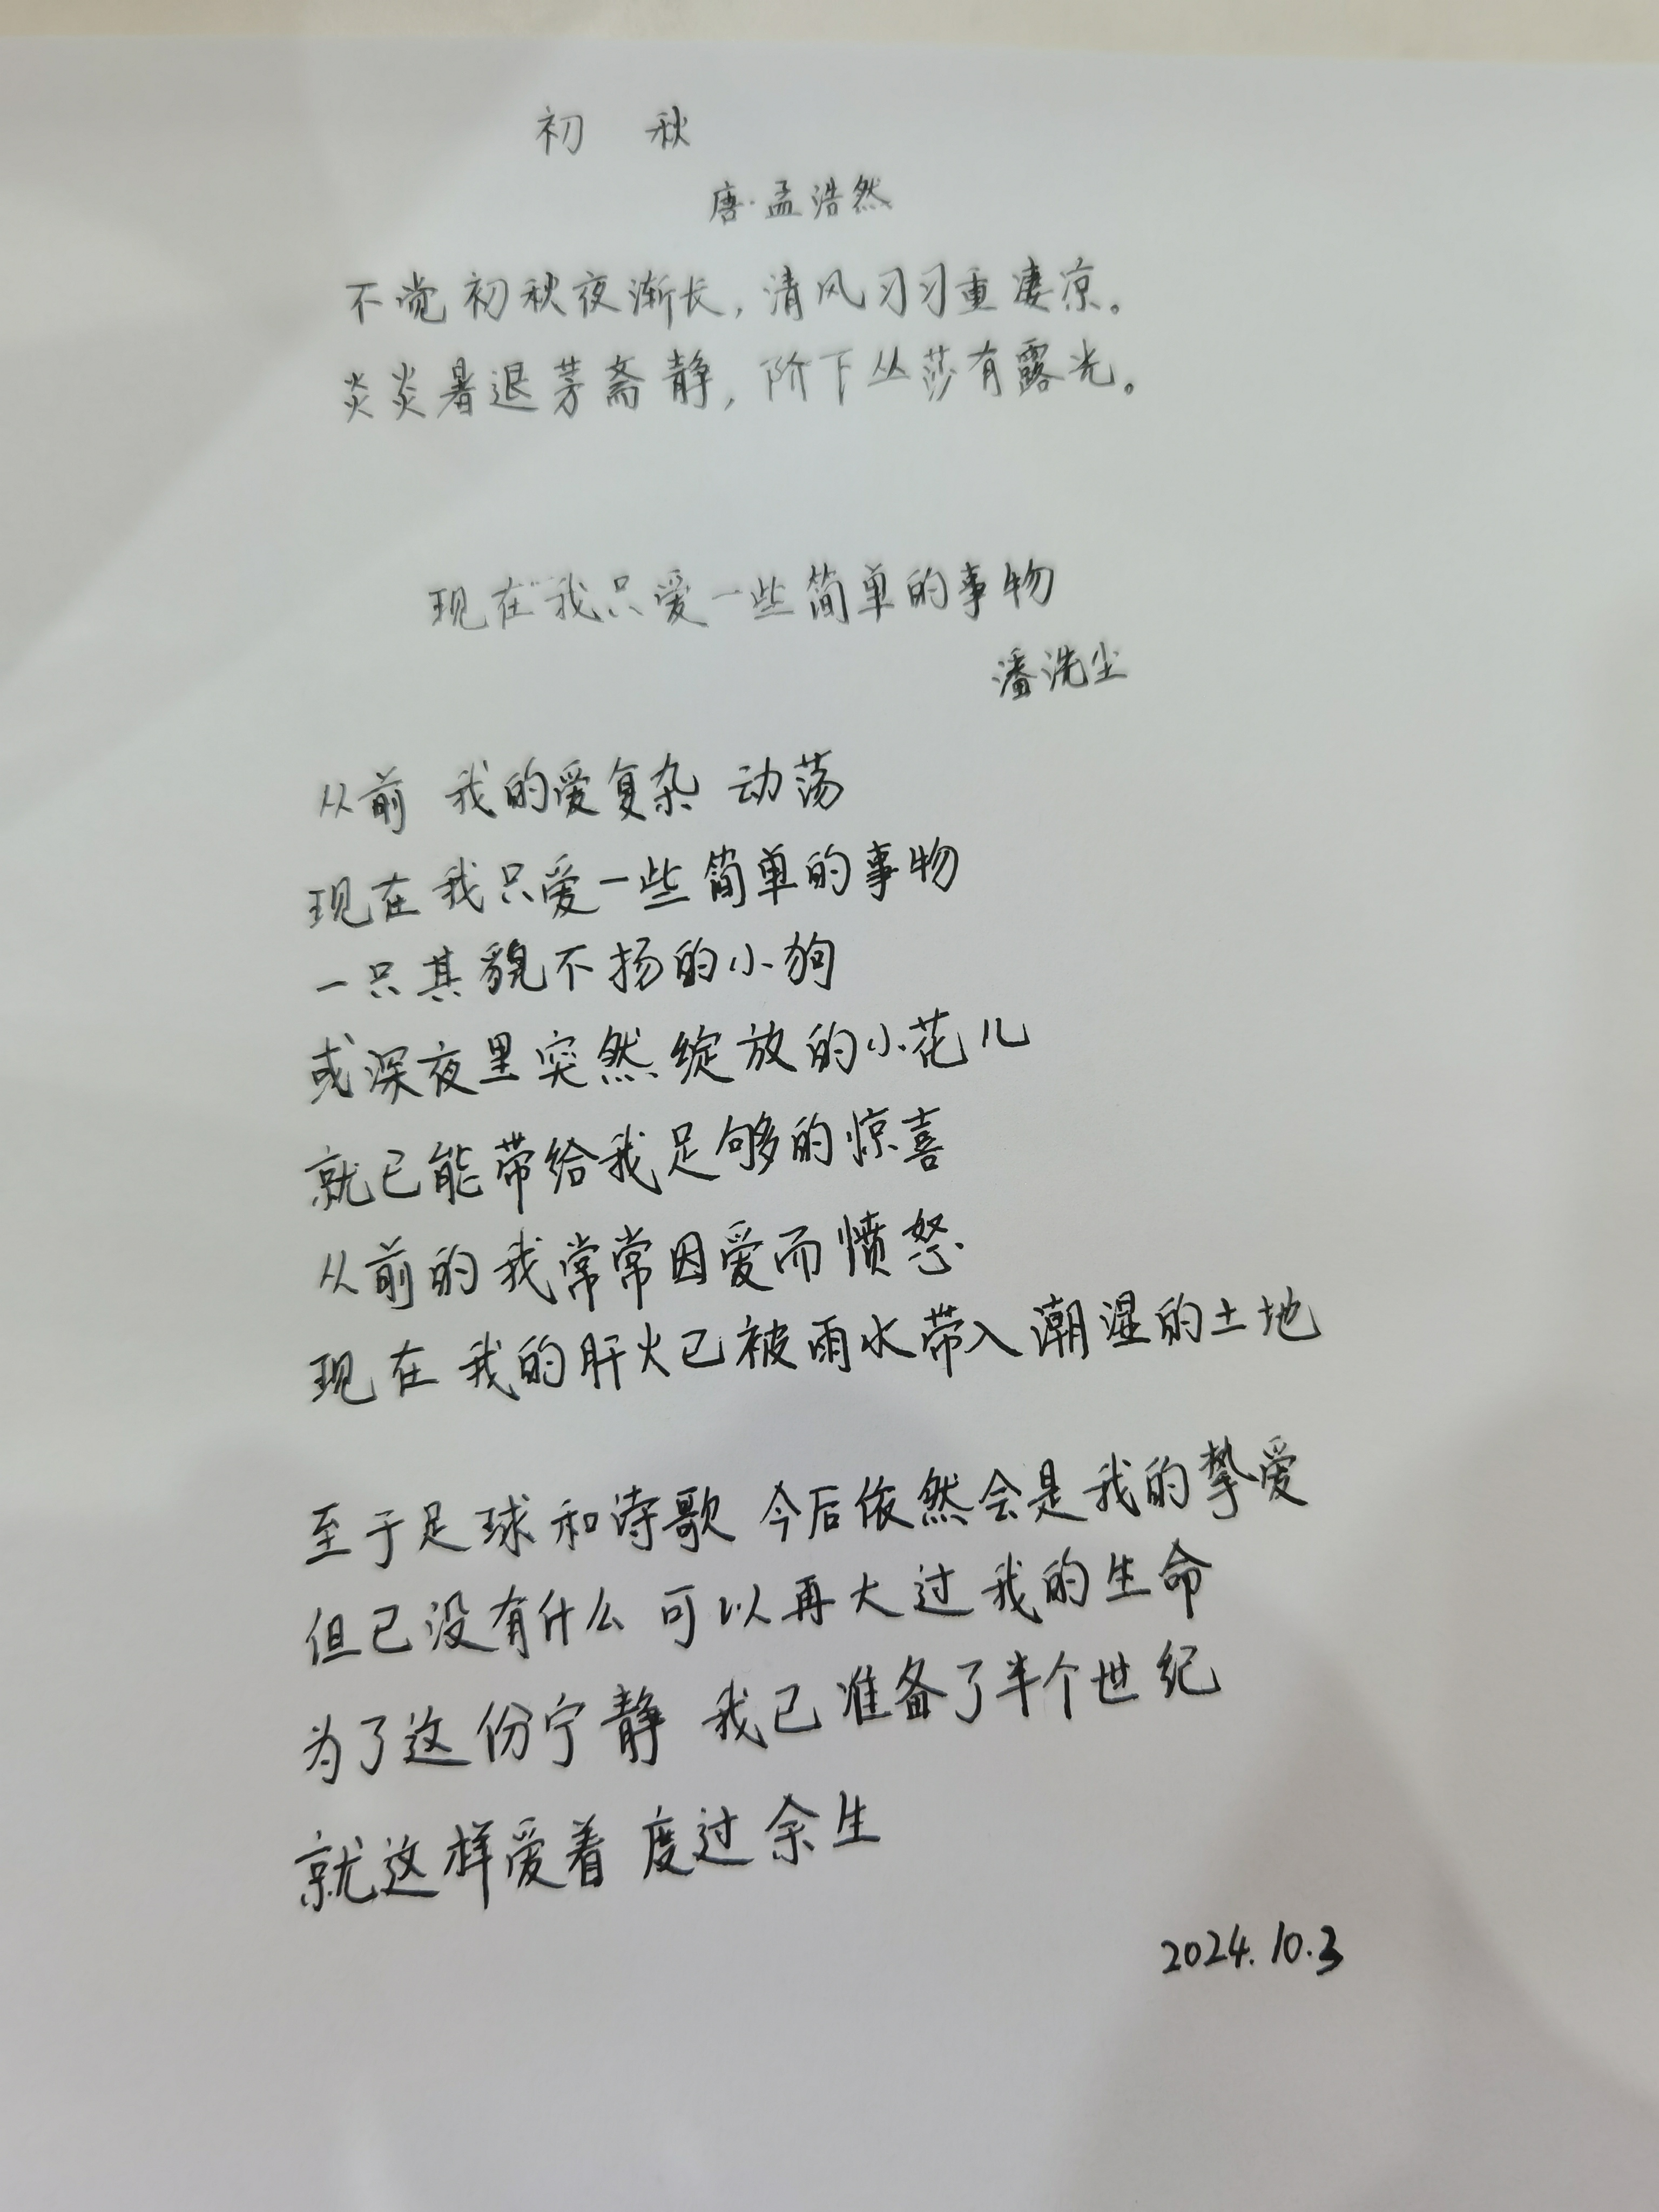 初 秋
唐·孟浩然
不觉初秋夜渐长，清风习习重凄凉。
炎炎暑退茅斋静，阶下丛莎有露光。
现在我只爱一些简单的事物
潘洗尘
从前 我的爱复杂 动荡
现在我只爱一些简单的事物
一只其貌不扬的小狗
或深夜里突然绽放的小花儿
就已能带给我足够的惊喜
从前的我常常因爱而愤怒
现在 我的肝火已被雨水带入潮湿的土地
至于足球和诗歌 今后依然会是我的挚爱
但已没有什么 可以再大过我的生命
为了这份宁静 我已准备了半个世纪
就这样爱着 度过余生
2024.10.3